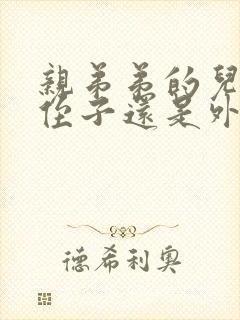 親弟弟的兒
侄子還是外
德希利奧